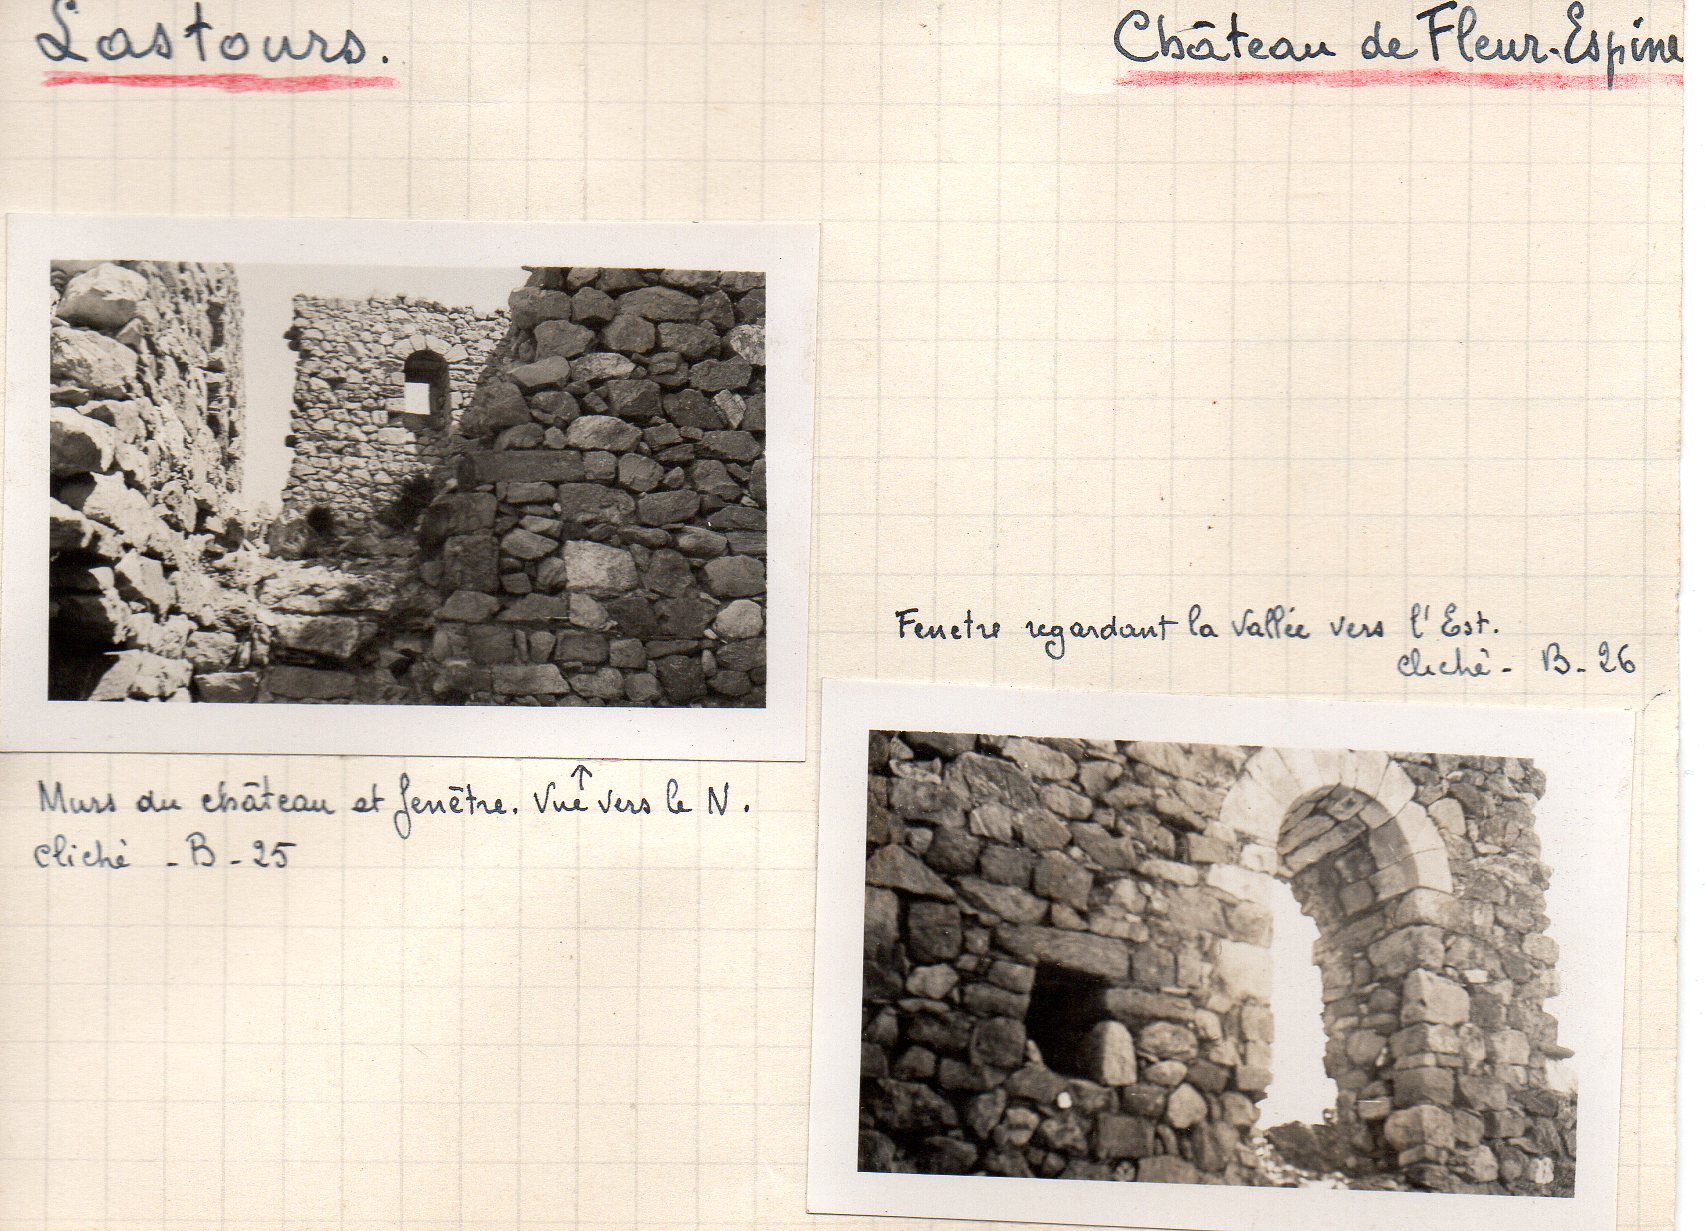 Lastours.
Château de Fleur-Espine
Murs du château et fenêtre. Vue vers le N.
cliché - B - 25
Fenetre regardant la vallée vers l'Est.
cliché - B - 26
B